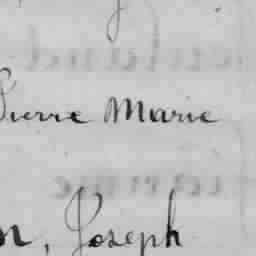 Pierre Marie
n, Joseph